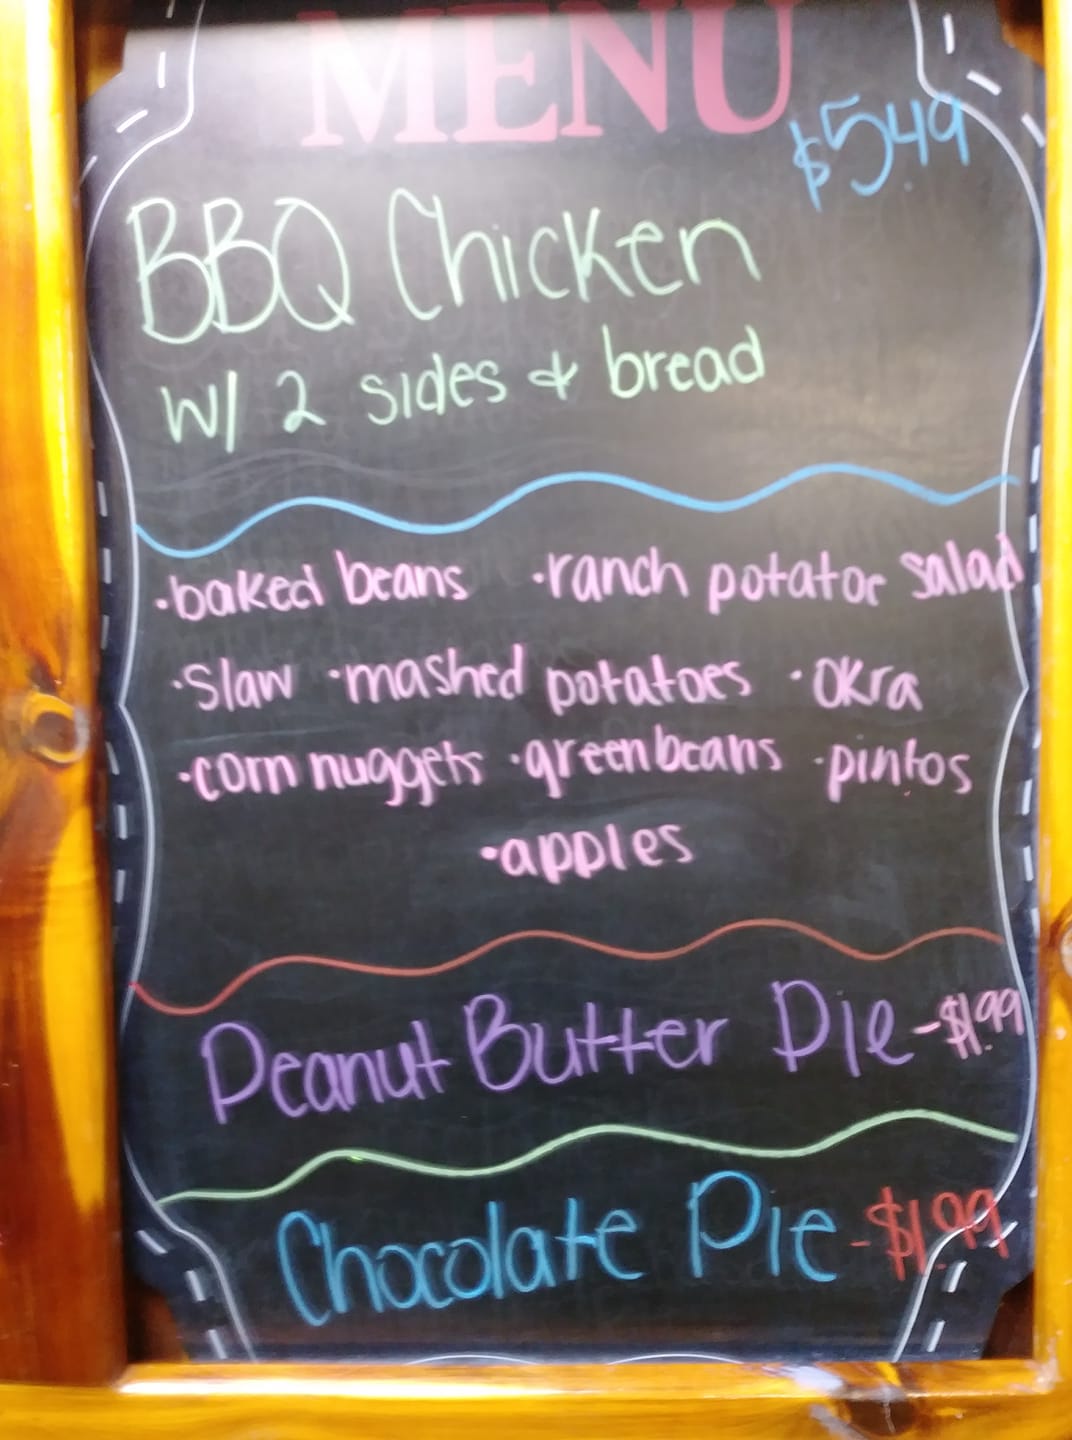 MENU
$5.49
BBQ Chicken
W/ 2 sides & bread
·baked beans ·ranch potator salad
·Slaw ·mashed potatoes ·OKra
·corn nuggets ·greenbeans ·pintos
·apples
Peanut Butter Pie -$1.99
Chocolate Pie -$1.99